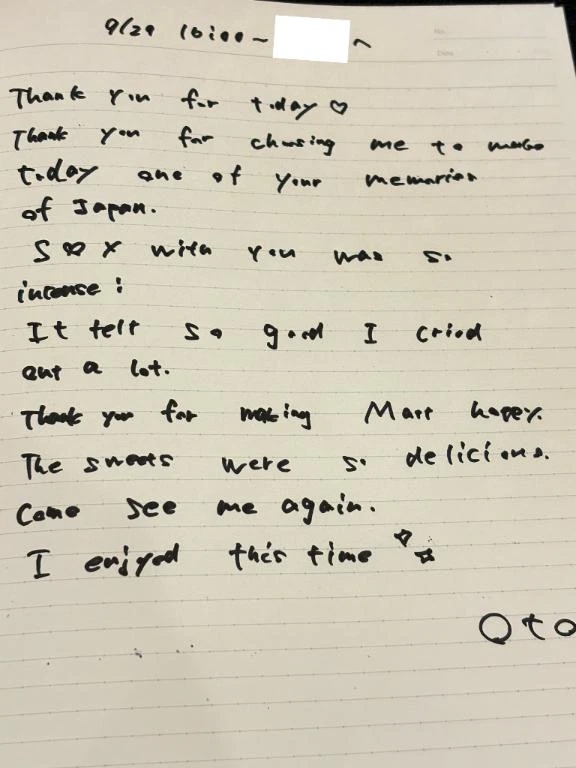 9/29 16:00~ ~
Thank you for today ♡
Thank you for chosing me to make
today one of your memories
of Japan.
S♡x with you was so
intense!
It felt so good I cried
out a lot.
Thank you for making Mari happy.
The sweets were so delicious.
Come see me again.
I enjyed this time ☆☆
Oto